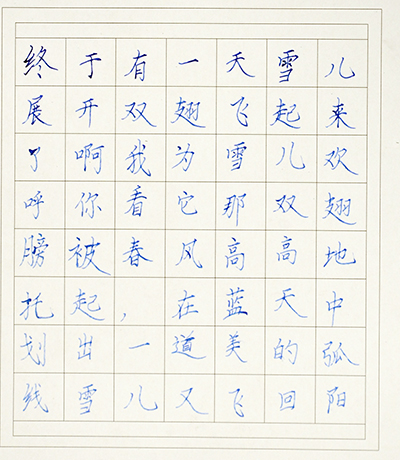 终于有一天雪儿
展开双翅飞起来
了啊我为雪儿欢
呼你看它那双翅
膀被春风高高地
托起，在蓝天中
划出一道美的弧
线雪儿又飞回阳